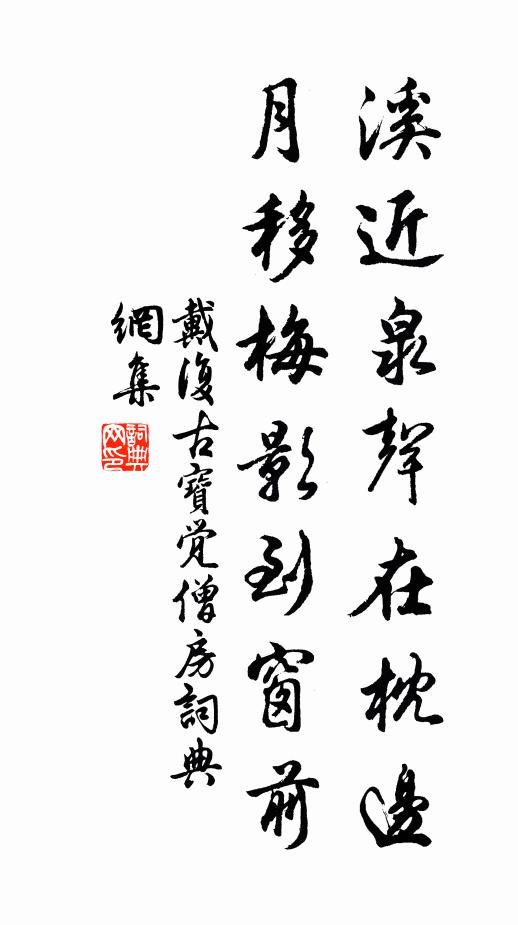 溪近泉聲在枕邊
月移梅影到窗前
戴復古寶覺僧房詞典
網集
詞典
网印